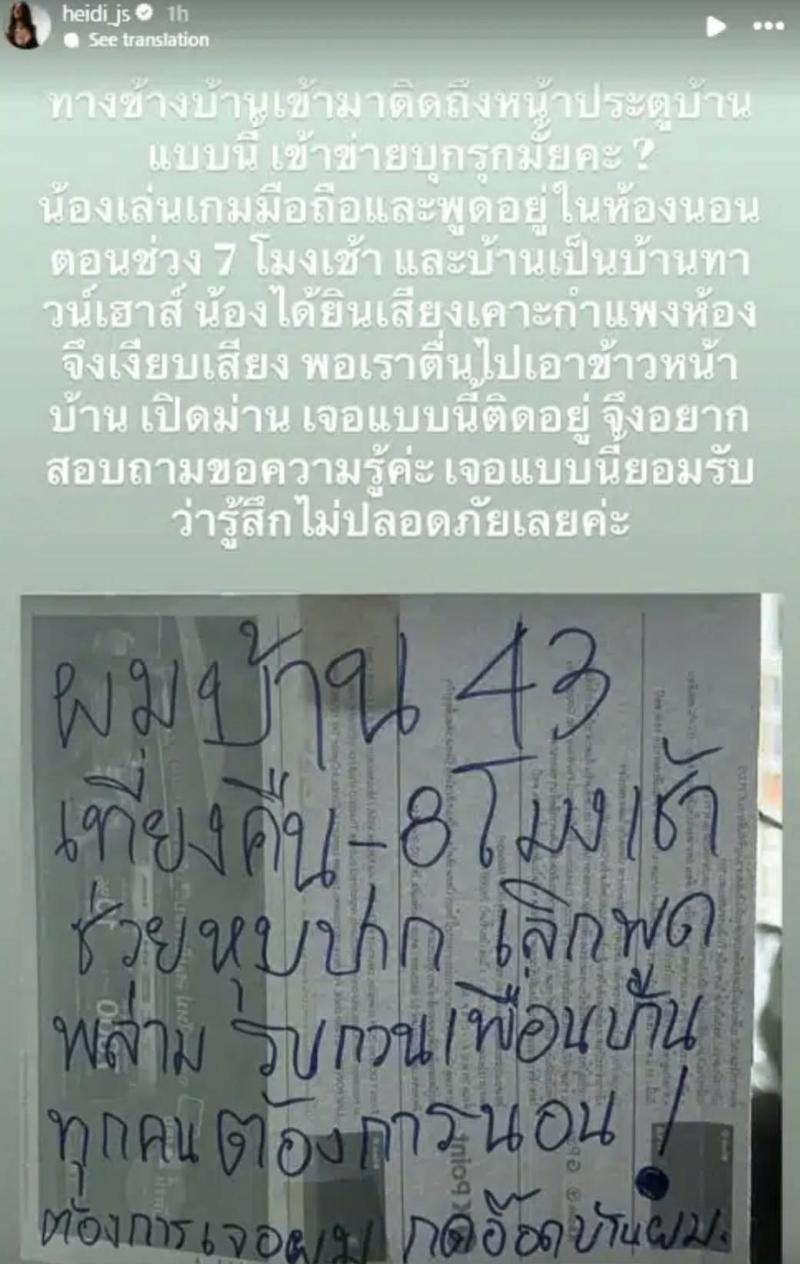 heidi_js 1h
See translation
ทางข้างบ้านเข้ามาติดถึงหน้าประตูบ้าน
แบบนี้ เข้าข่ายบุกรุกมั้ยคะ ?
น้องเล่นเกมมือถือและพูดอยู่ในห้องนอน
ตอนช่วง 7 โมงเช้า และบ้านเป็นบ้านทา
วน์เฮาส์ น้องได้ยินเสียงเคาะกำแพงห้อง
จึงเงียบเสียง พอเราตื่นไปเอาข้าวหน้า
บ้าน เปิดม่าน เจอแบบนี้ติดอยู่ จึงอยาก
สอบถามขอความรู้ค่ะ เจอแบบนี้ยอมรับ
ว่ารู้สึกไม่ปลอดภัยเลยค่ะ
ผมบ้าน 43
เที่ยงคืน - 8 โมงเช้า
ช่วยหุบปาก เลิกพูด
พล่าม รบกวนเพื่อนบ้าน
ทุกคนต้องการนอน !
ต้องการเจอผม กดอ๊อดบ้านผม